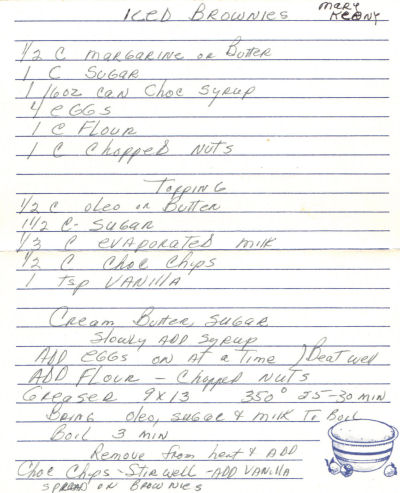 Iced Brownies
Mary Keany
1/2 C margarine or Butter
1 C Sugar
1 16oz can Choc Syrup
4 eggs
1 C Flour
1 C Chopped Nuts
Topping
1/2 C oleo or Butter
1 1/2 C - Sugar
1/3 C evaporated milk
1/2 C Choc Chips
1 tsp Vanilla
Cream Butter, Sugar
Slowly Add Syrup
Add eggs on at a Time ) Beat well
Add Flour - Chopped Nuts
Greased 9x13 350° 25-30 min
Bring oleo, sugar & milk To Boil
Boil 3 min
Remove from heat & Add
Choc Chips - Stir well - Add Vanilla
Spread on Brownies